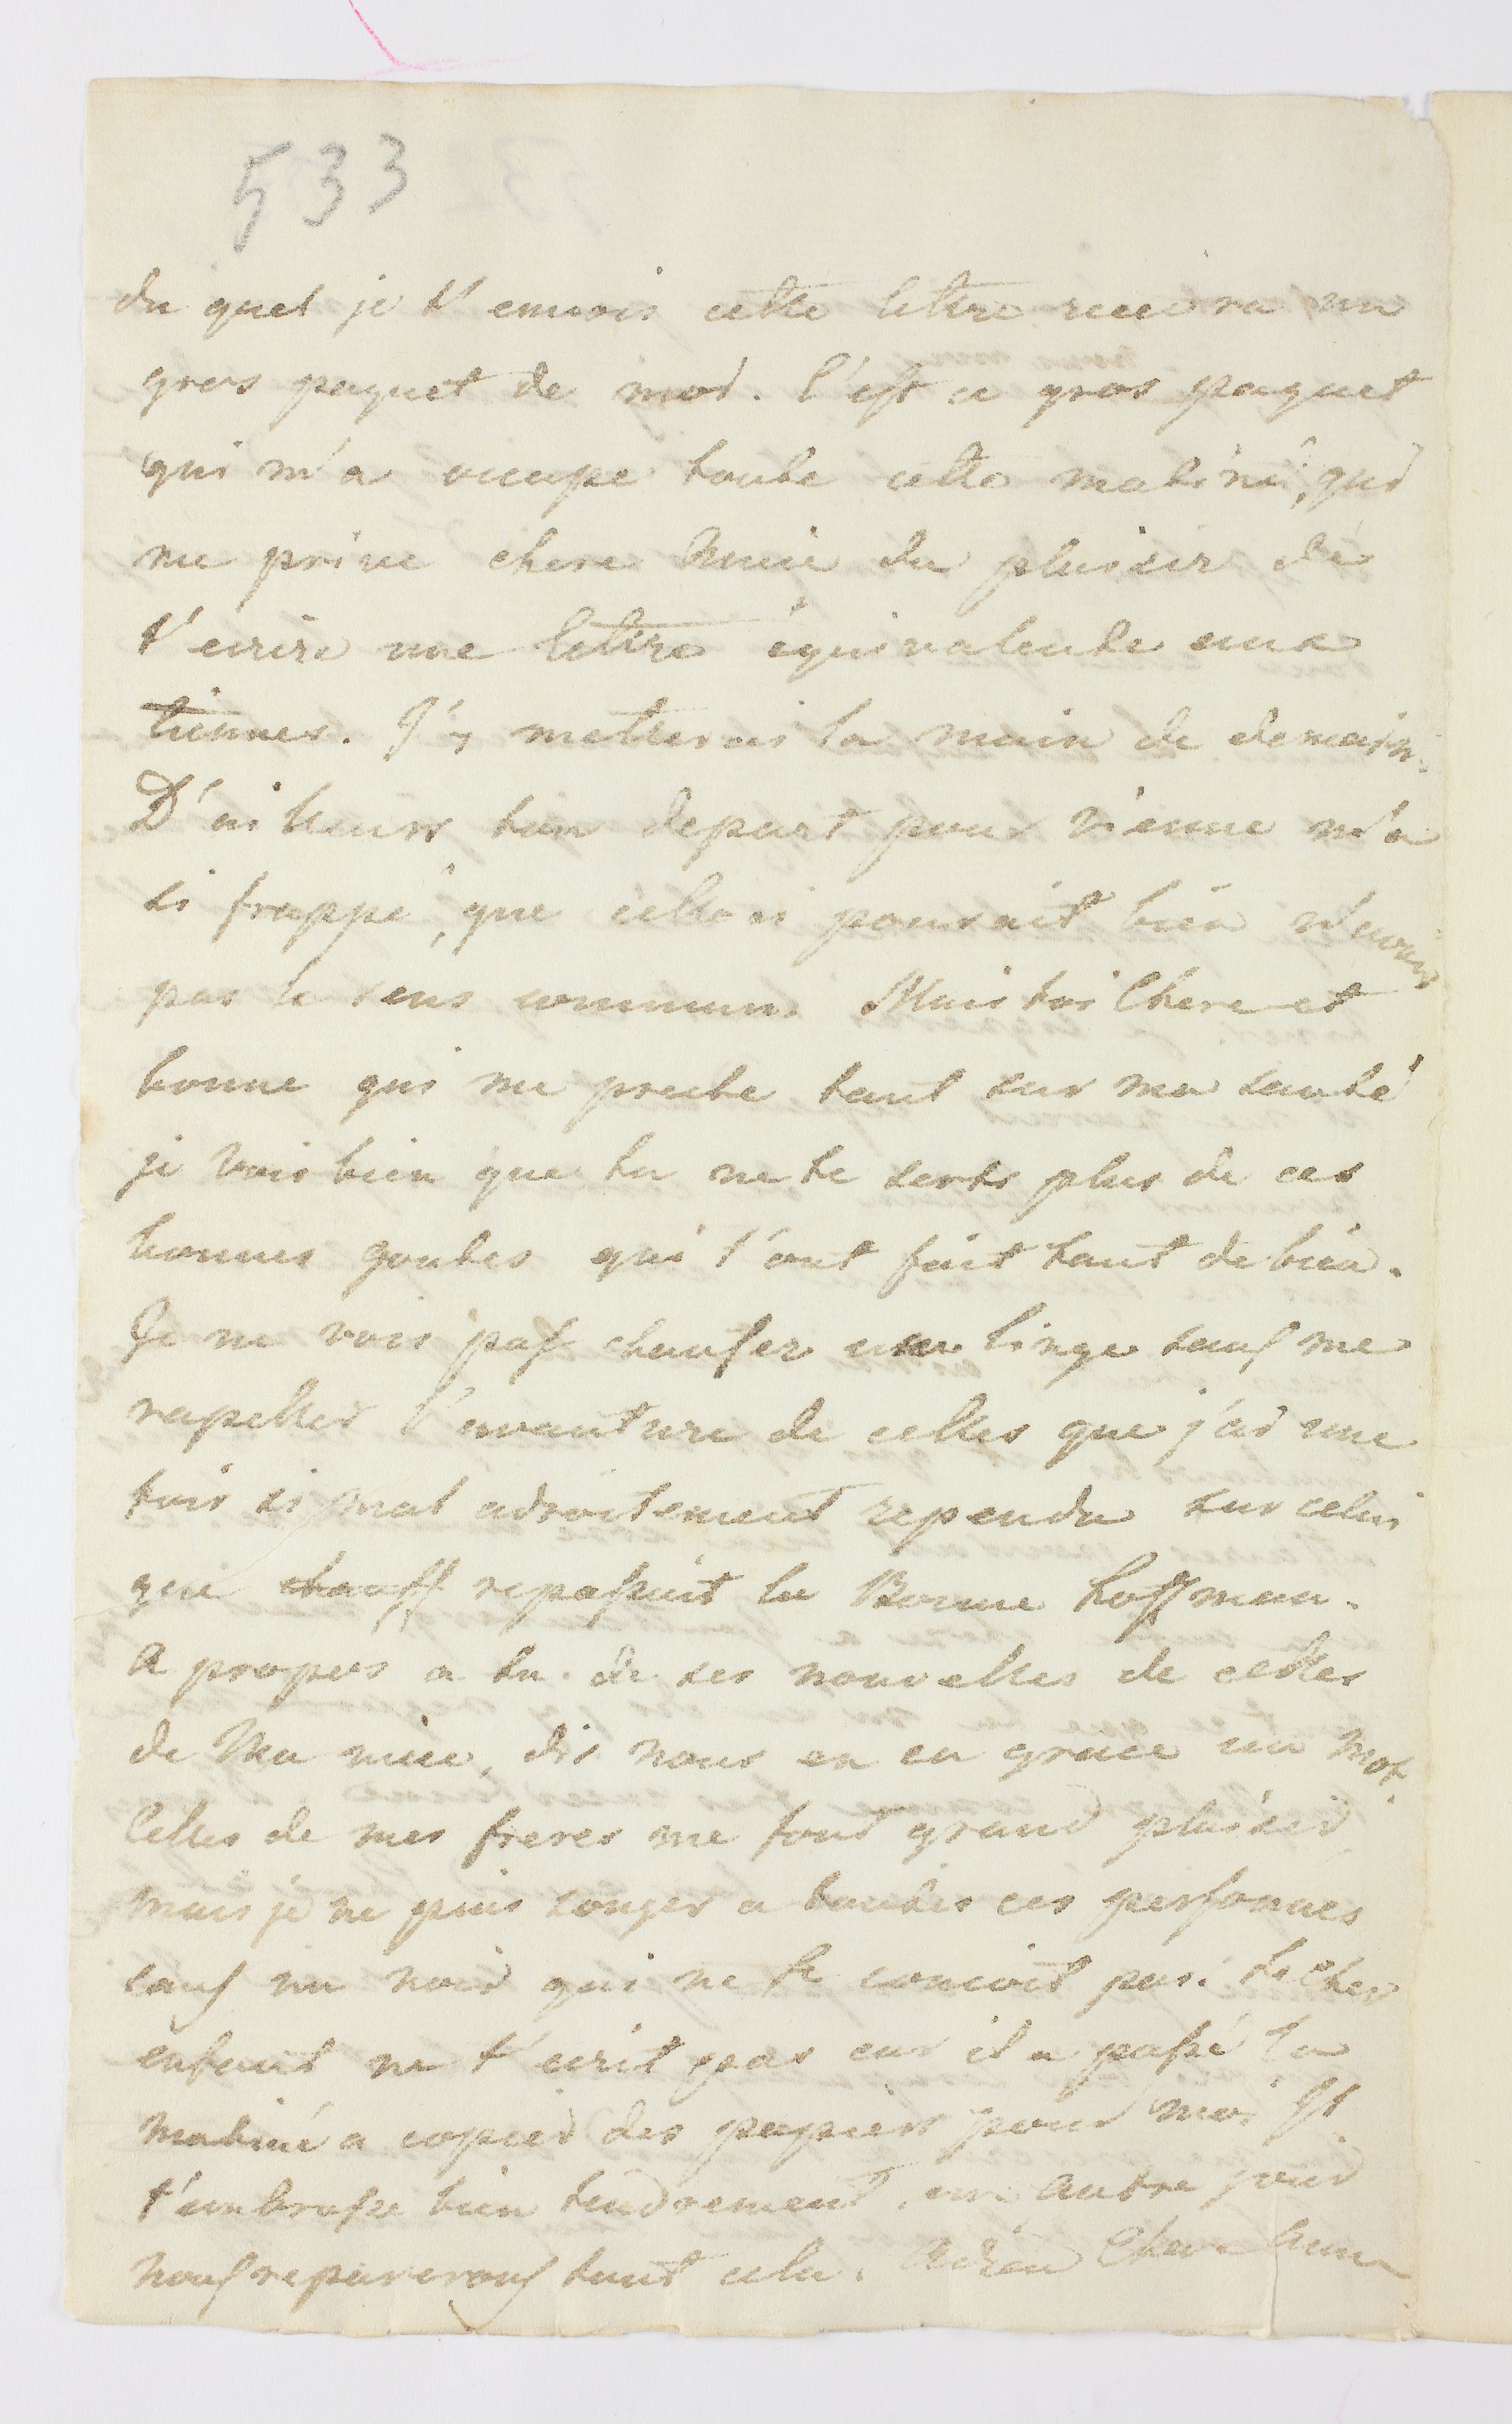 533
du quel je t'envois cette lettre recevra un
gros paquet de moi. C'est ce gros paquet
qui m'a occupé toute cette matiné, qui
me prive chere Amie du plaisir de
t'ecrire une lettre équivalente aux
tiennes. J'y metterai la main de demain.
D'ailleurs ton depart pour Vienne m'a
si frappé, que celle ci pourait bien n'avoir
pas le sens commun. Mais toi Chere et
bonne qui me preche tant sur ma santé
je vois bien que tu ne te serts plus de ces
bonnes goutes qui t'ont fait tant de bien.
Je ne vois pas chaufer un linge sans me
rapeller l'avanture de celles que j'ai une
fois si mal adroitement rependu sur celui
que chauff repassait la Bonne Hoffman.
A propos a tu de ses nouvelles de celles
de Ma mie, dis nous en en grace un mot.
Celles de mes freres me font grand plaisir
mais je ne puis songer a toutes ces personnes
sans un noir qui ne se concoit pas. Le cher
enfant ne t'ecrit pas car il a passé la
matiné a copier des papiers pour moi Il
t'embrasse bien tendrement, un autre jour
nous reparerons tout cela. Adieu Chere Amie